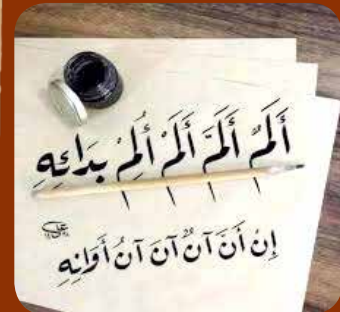 أَلَمٌ أَلَمَّ أَلَمْ أُلِمْ بِدَائِهِ
إِنْ أَنَّ آنٌ آنَ آنُ أَوَانِهِ